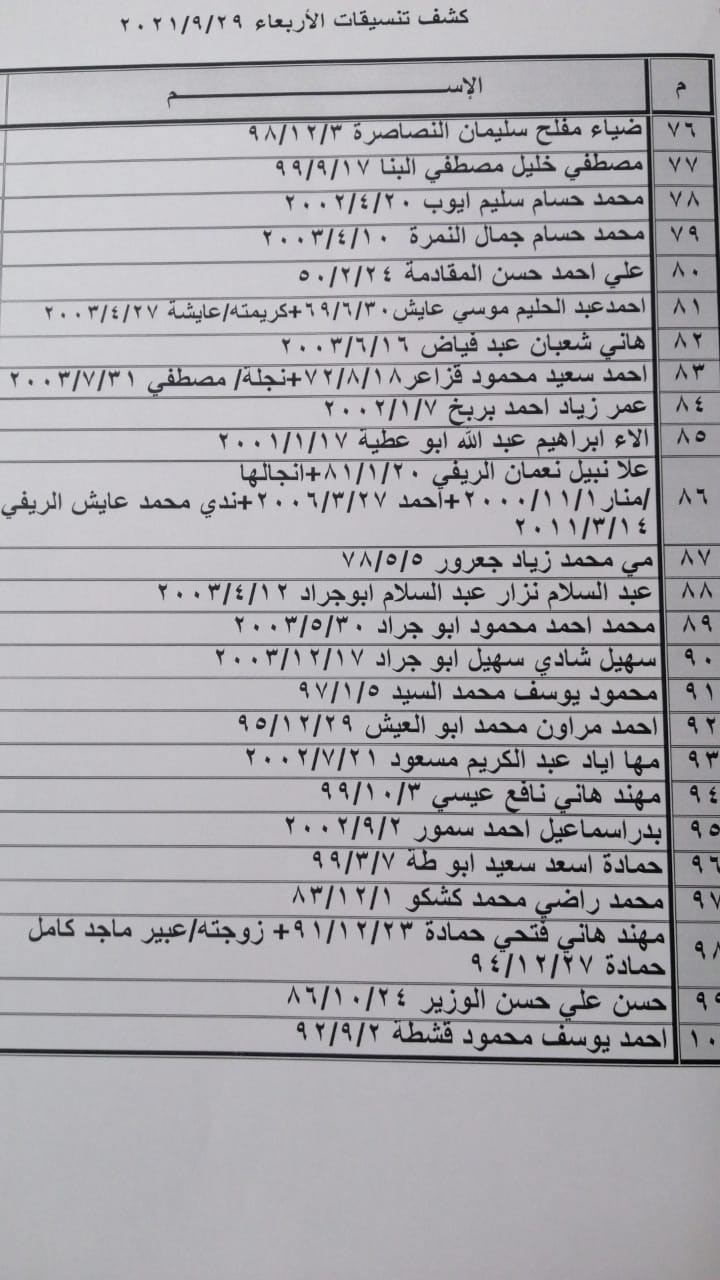 كشف تنسيقات الأربعاء ٢٠٢١/٩/٢٩
م الإســـــــــــــــــــــــــــــــــم
٧٦ ضياء مفلح سليمان النصاصرة ٩٨/١٢/٣
٧٧ مصطفي خليل مصطفي البنا ٩٩/٩/١٧
٧٨ محمد حسام سليم ايوب ٢٠٠٢/٤/٢٠
٧٩ محمد حسام جمال النمرة ٢٠٠٣/٤/١٠
٨٠ علي احمد حسن المقادمة ٥٠/٢/٢٤
٨١ احمدعبد الحليم موسي عايش٦٩/٦/٣٠+كريمته/عايشة ٢٠٠٣/٤/٢٧
٨٢ هاني شعبان عبد فياض ٢٠٠٣/٦/١٦
٨٣ احمد سعيد محمود قزاعر٧٢/٨/١٨+نجلة/ مصطفي ٢٠٠٣/٧/٣١
٨٤ عمر زياد احمد بربخ ٢٠٠٢/١/٧
٨٥ الاء ابراهيم عبد الله ابو عطية ٢٠٠١/١/١٧
علا نبيل نعمان الريفي ٨١/١/٢٠+انجالها
٨٦ /منار٢٠٠٠/١١/١+احمد ٢٠٠٦/٣/٢٧+ندي محمد عايش الريفي
٢٠١١/٣/١٤
٨٧ مي محمد زياد جعرور ٧٨/٥/٥
٨٨ عبد السلام نزار عبد السلام ابوجراد ٢٠٠٣/٤/١٢
٨٩ محمد احمد محمود ابو جراد ٢٠٠٣/٥/٣٠
٩٠ سهيل شادي سهيل ابو جراد ٢٠٠٣/١٢/١٧
٩١ محمود يوسف محمد السيد ٩٧/١/٥
٩٢ احمد مراون محمد ابو العيش ٩٥/١٢/٢٩
٩٣ مها اياد عبد الكريم مسعود ٢٠٠٢/٧/٢١
٩٤ مهند هاني نافع عيسي ٩٩/١٠/٣
٩٥ بدراسماعيل احمد سمور ٢٠٠٢/٩/٢
٩٦ حمادة اسعد سعيد ابو طة ٩٩/٣/٧
٩٧ محمد راضي محمد كشكو ٨٣/١٢/١
٩٨ مهند هاني فتحي حمادة ٩١/١٢/٢٣+ زوجته/عبير ماجد كامل
حمادة ٩٤/١٢/٢٧
٩٩ حسن علي حسن الوزير ٨٦/١٠/٢٤
١٠ احمد يوسف محمود قشطة ٩٢/٩/٢